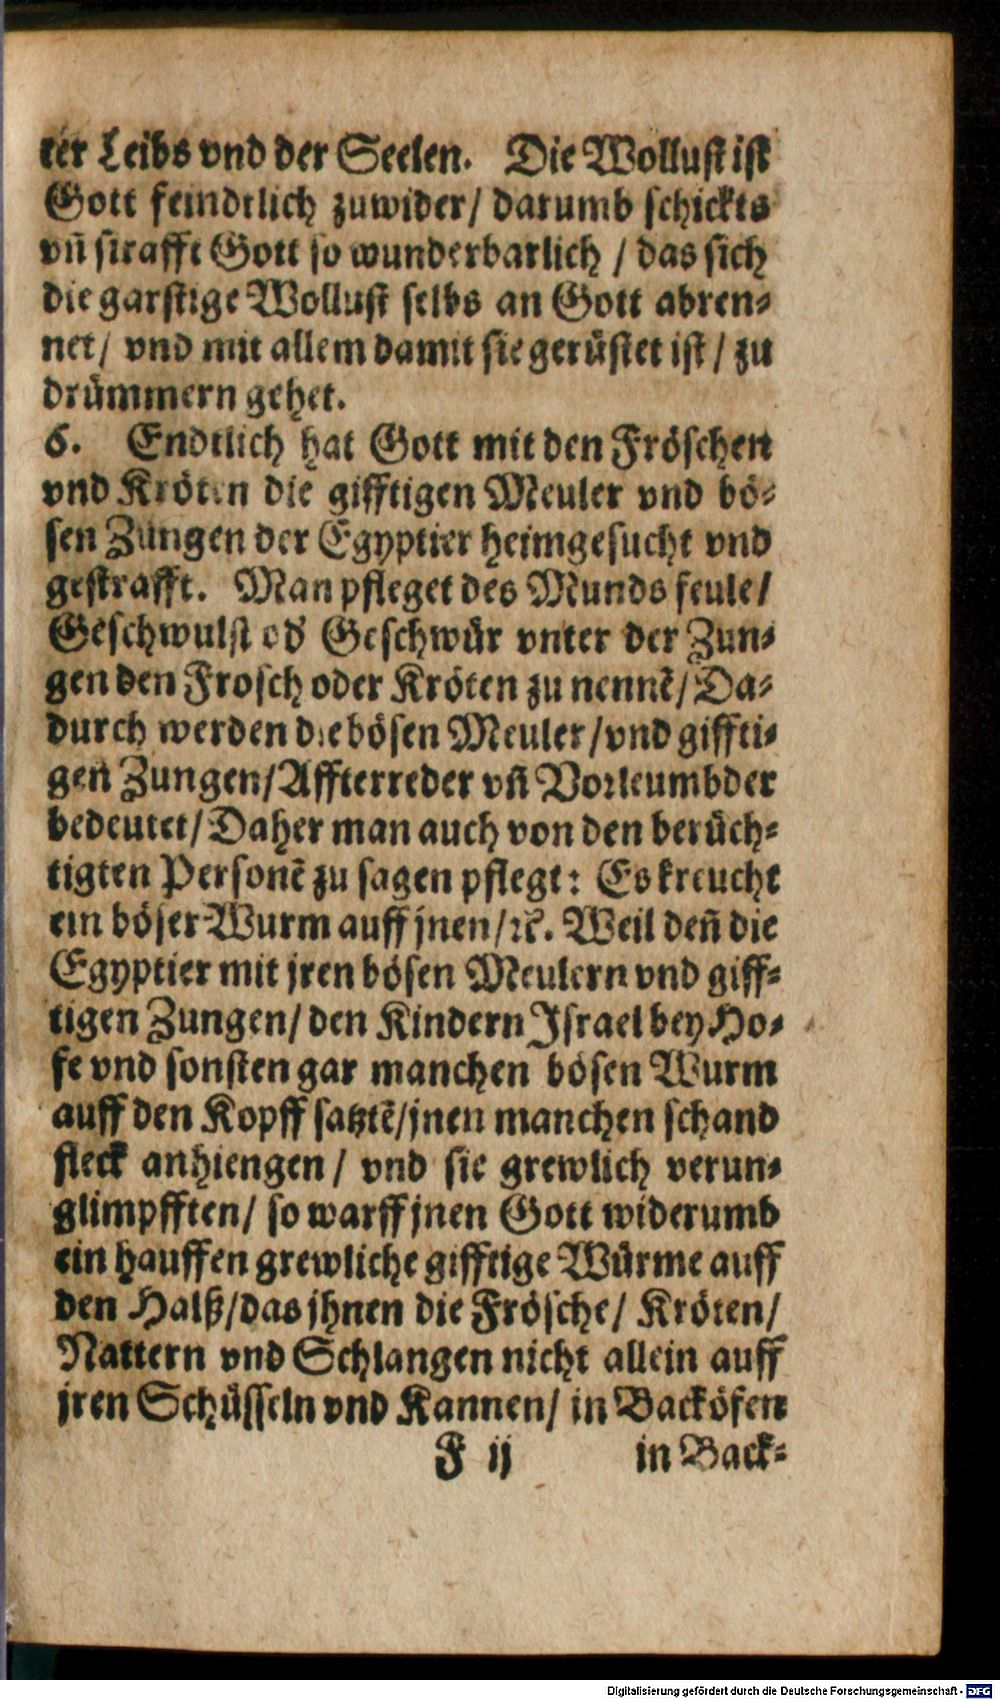 ter Leibs vnd der Seelen. Die Wollust ist
Gott feindtlich zuwider/ darumb schickts
vñ strafft Gott so wunderbarlich / das sich
die garstige Wollust selbs an Gott abren-
net/ vnd mit allem damit sie gerůstet ist / zu
drümmern gehet.
6. Endtlich hat Gott mit den Fröschen
vnd Kröten die gifftigen Meuler vnd bö-
sen Zungen der Egyptier heimgesucht vnd
gestrafft. Man pfleget des Munds feule/
Geschwulst od' Geschwür vnter der Zun-
gen den Frosch oder Kröten zu nennẽ/ Da-
durch werden die bösen Meuler /vnd giffti-
gen Zungen/ Affterreder vñ Vorleumbder
bedeutet/ Daher man auch von den berůch-
tigten Personẽ zu sagen pflegt: Es kreucht
ein böser Wurm auff jnen/ꝛc. Weil deñ die
Egyptier mit jren bösen Meulern vnd giff-
tigen Zungen/ den Kindern Israel bey Ho-
fe vnd sonsten gar manchen bösen Wurm
auff den Kopff satztẽ/jnen manchen schand
fleck anhiengen/ vnd sie grewlich verun-
glimpfften/ so warff jnen Gott widerumb
ein hauffen grewliche gifftige Würme auff
den Halß/das jhnen die Frösche/ Kröten/
Nattern vnd Schlangen nicht allein auff
jren Schůsseln vnd Kannen/ in Backöfen
F ij in Back-
Digitalisierung gefördert durch die Deutsche Forschungsgemeinschaft - DFG